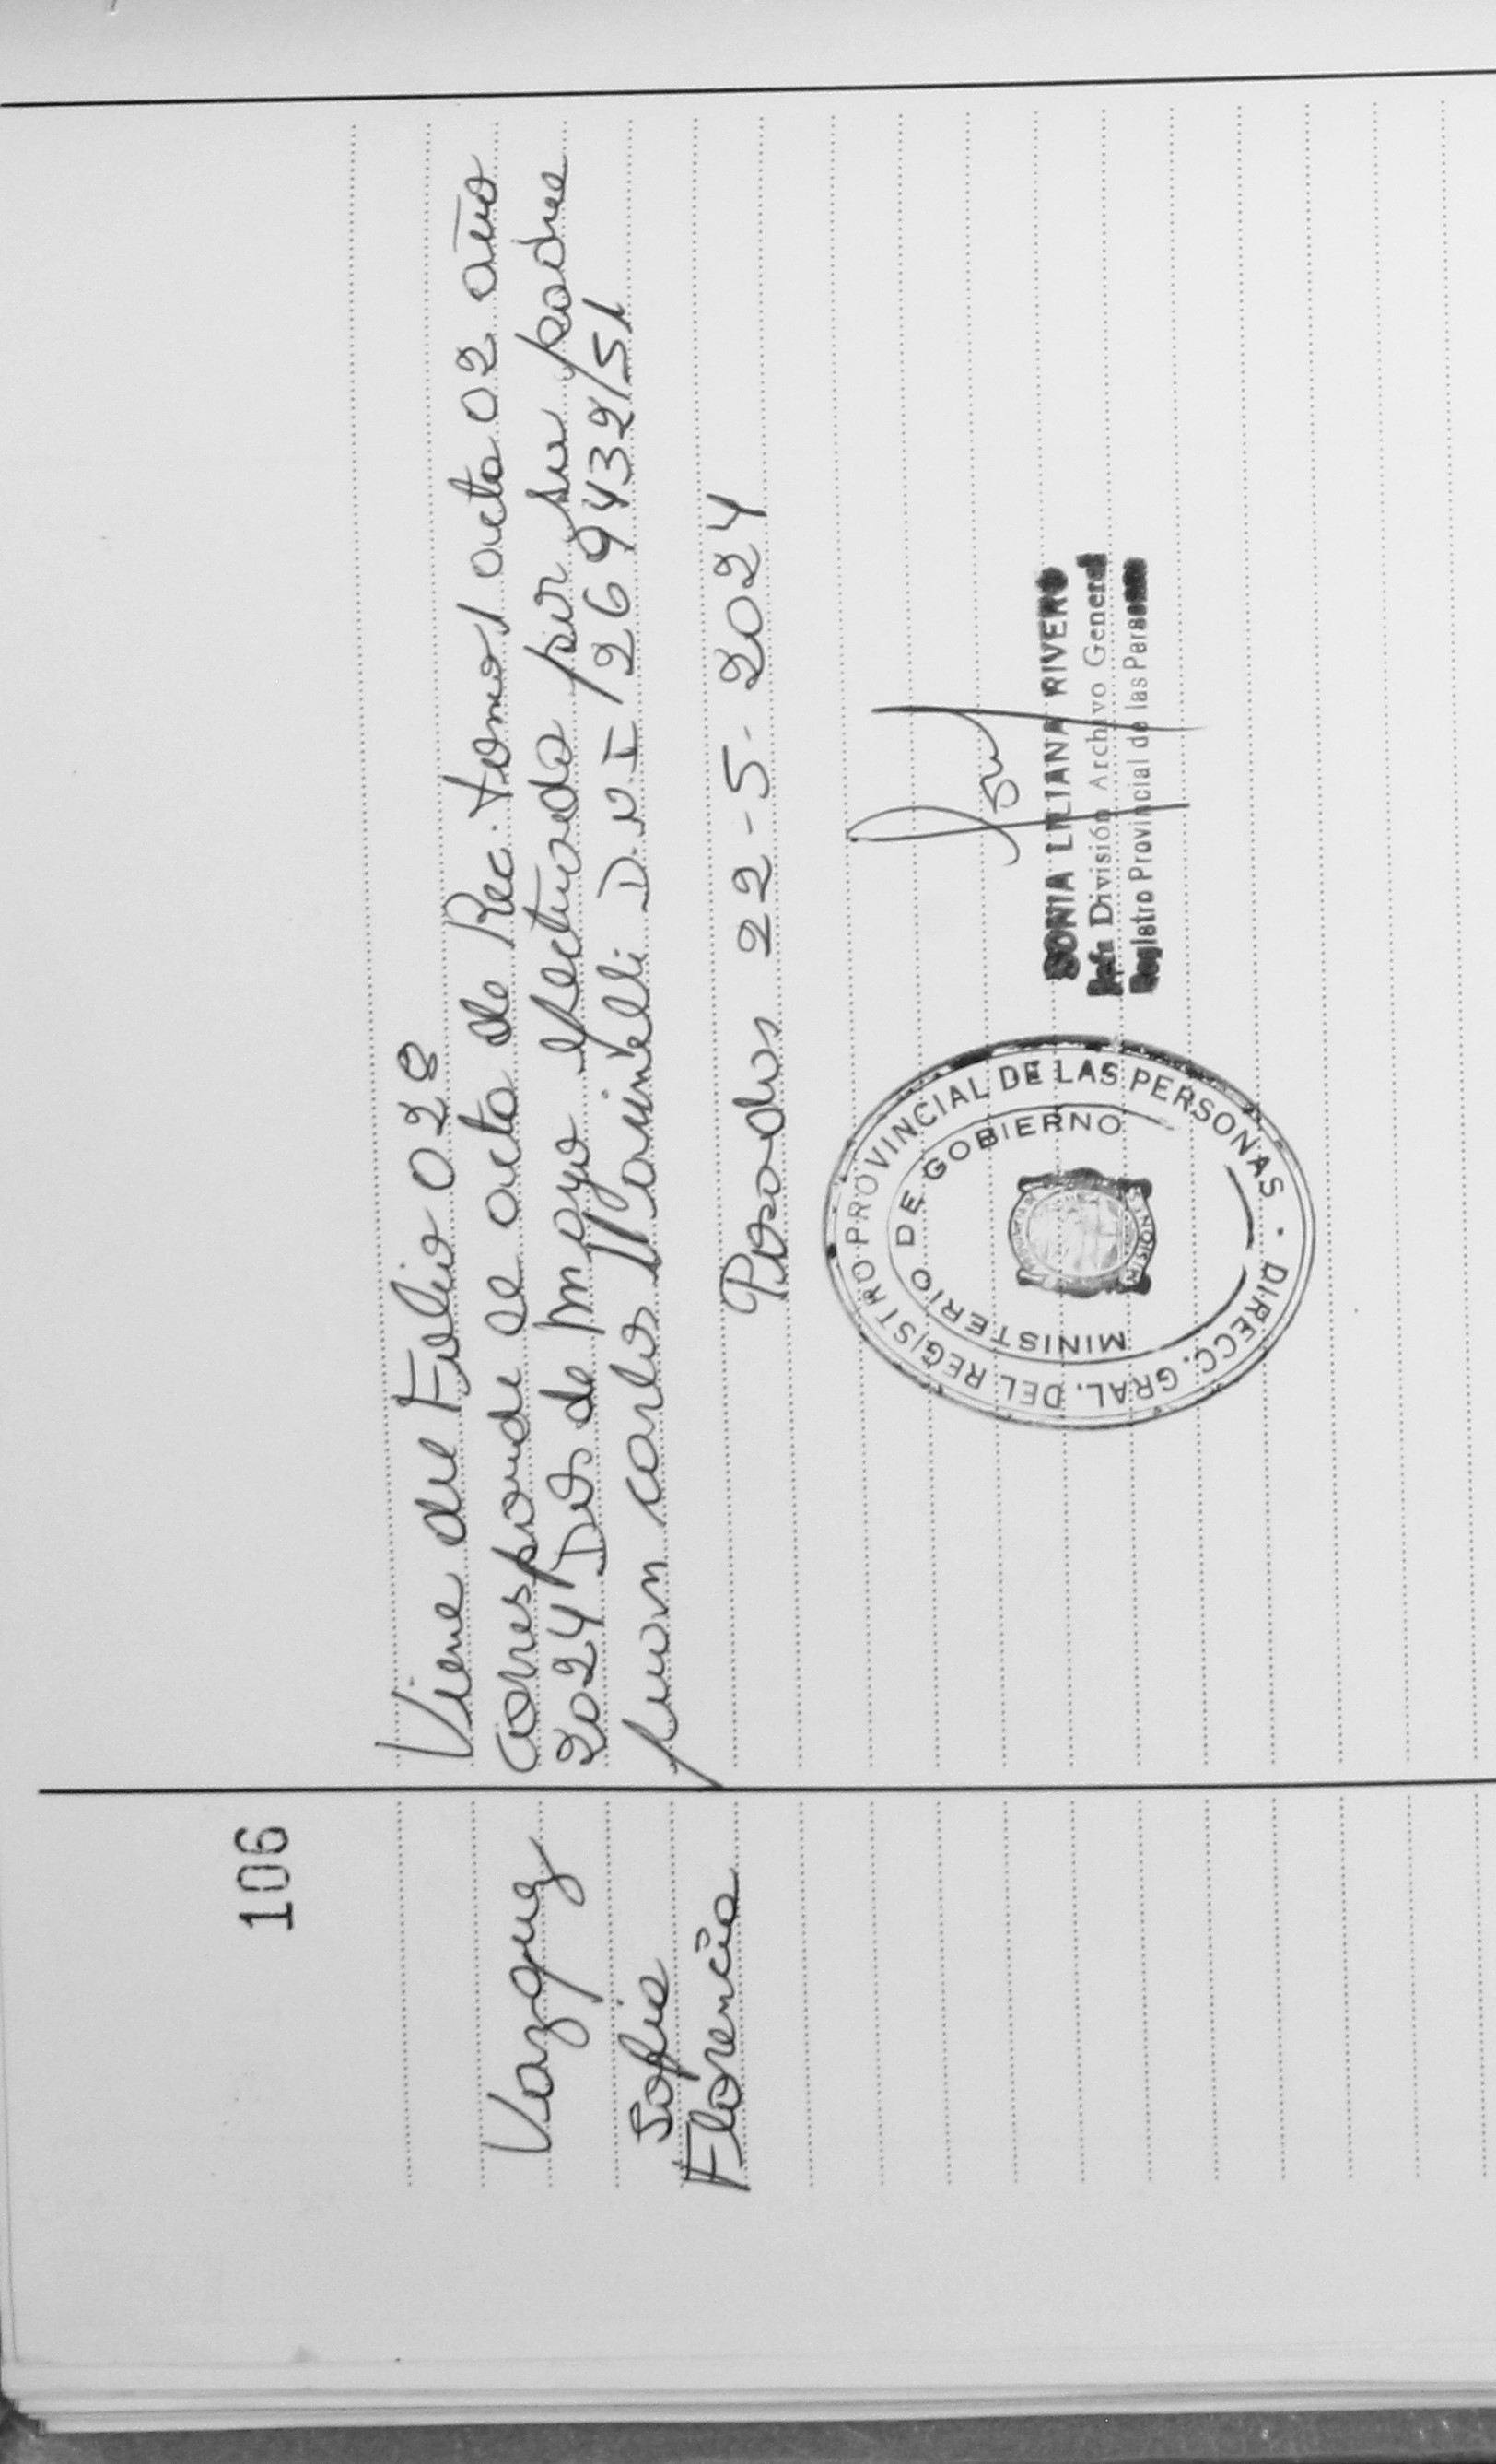 106
Vazquez
Sofia
Florencia
Viene del Folio 028
corresponde al acta de Rec. tomo 1 acta 02 año
2024 Dos de Mayo efectuado por su padre
Juan Carlos D.N.I 26943251
Posadas 22-5-2024
SONIA LILIANA RIVERO
Jefa División Archivo General
Registro Provincial de las Personas
DIRECC. GRAL. DEL REGISTRO PROVINCIAL DE LAS PERSONAS
MINISTERIO DE GOBIERNO